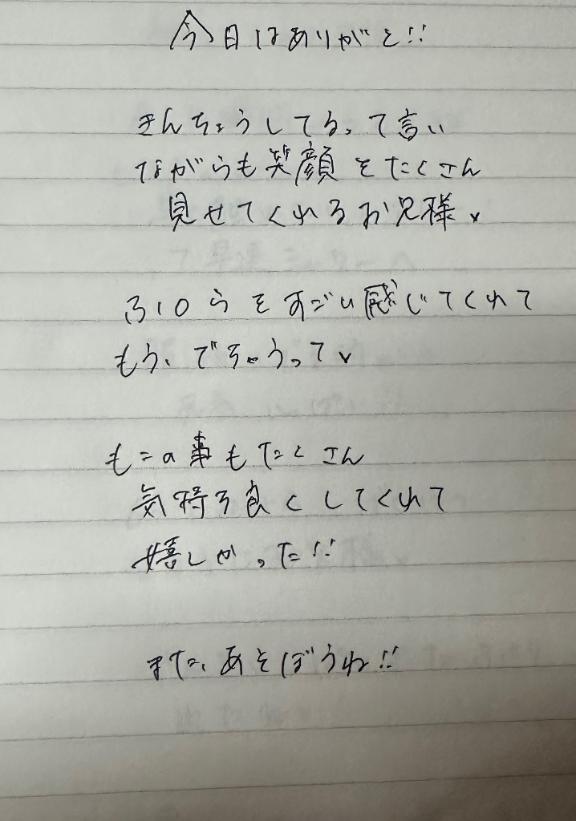 今日はありがと!!
きんちょうしてる、って言い
ながらも笑顔をたくさん
見せてくれるお兄様♥
ふぇらをすごい感じてくれて
もう、でちゃうって♥
もこの事もたくさん
気持ち良くしてくれて
嬉しかった!!
また、あそぼうね!!